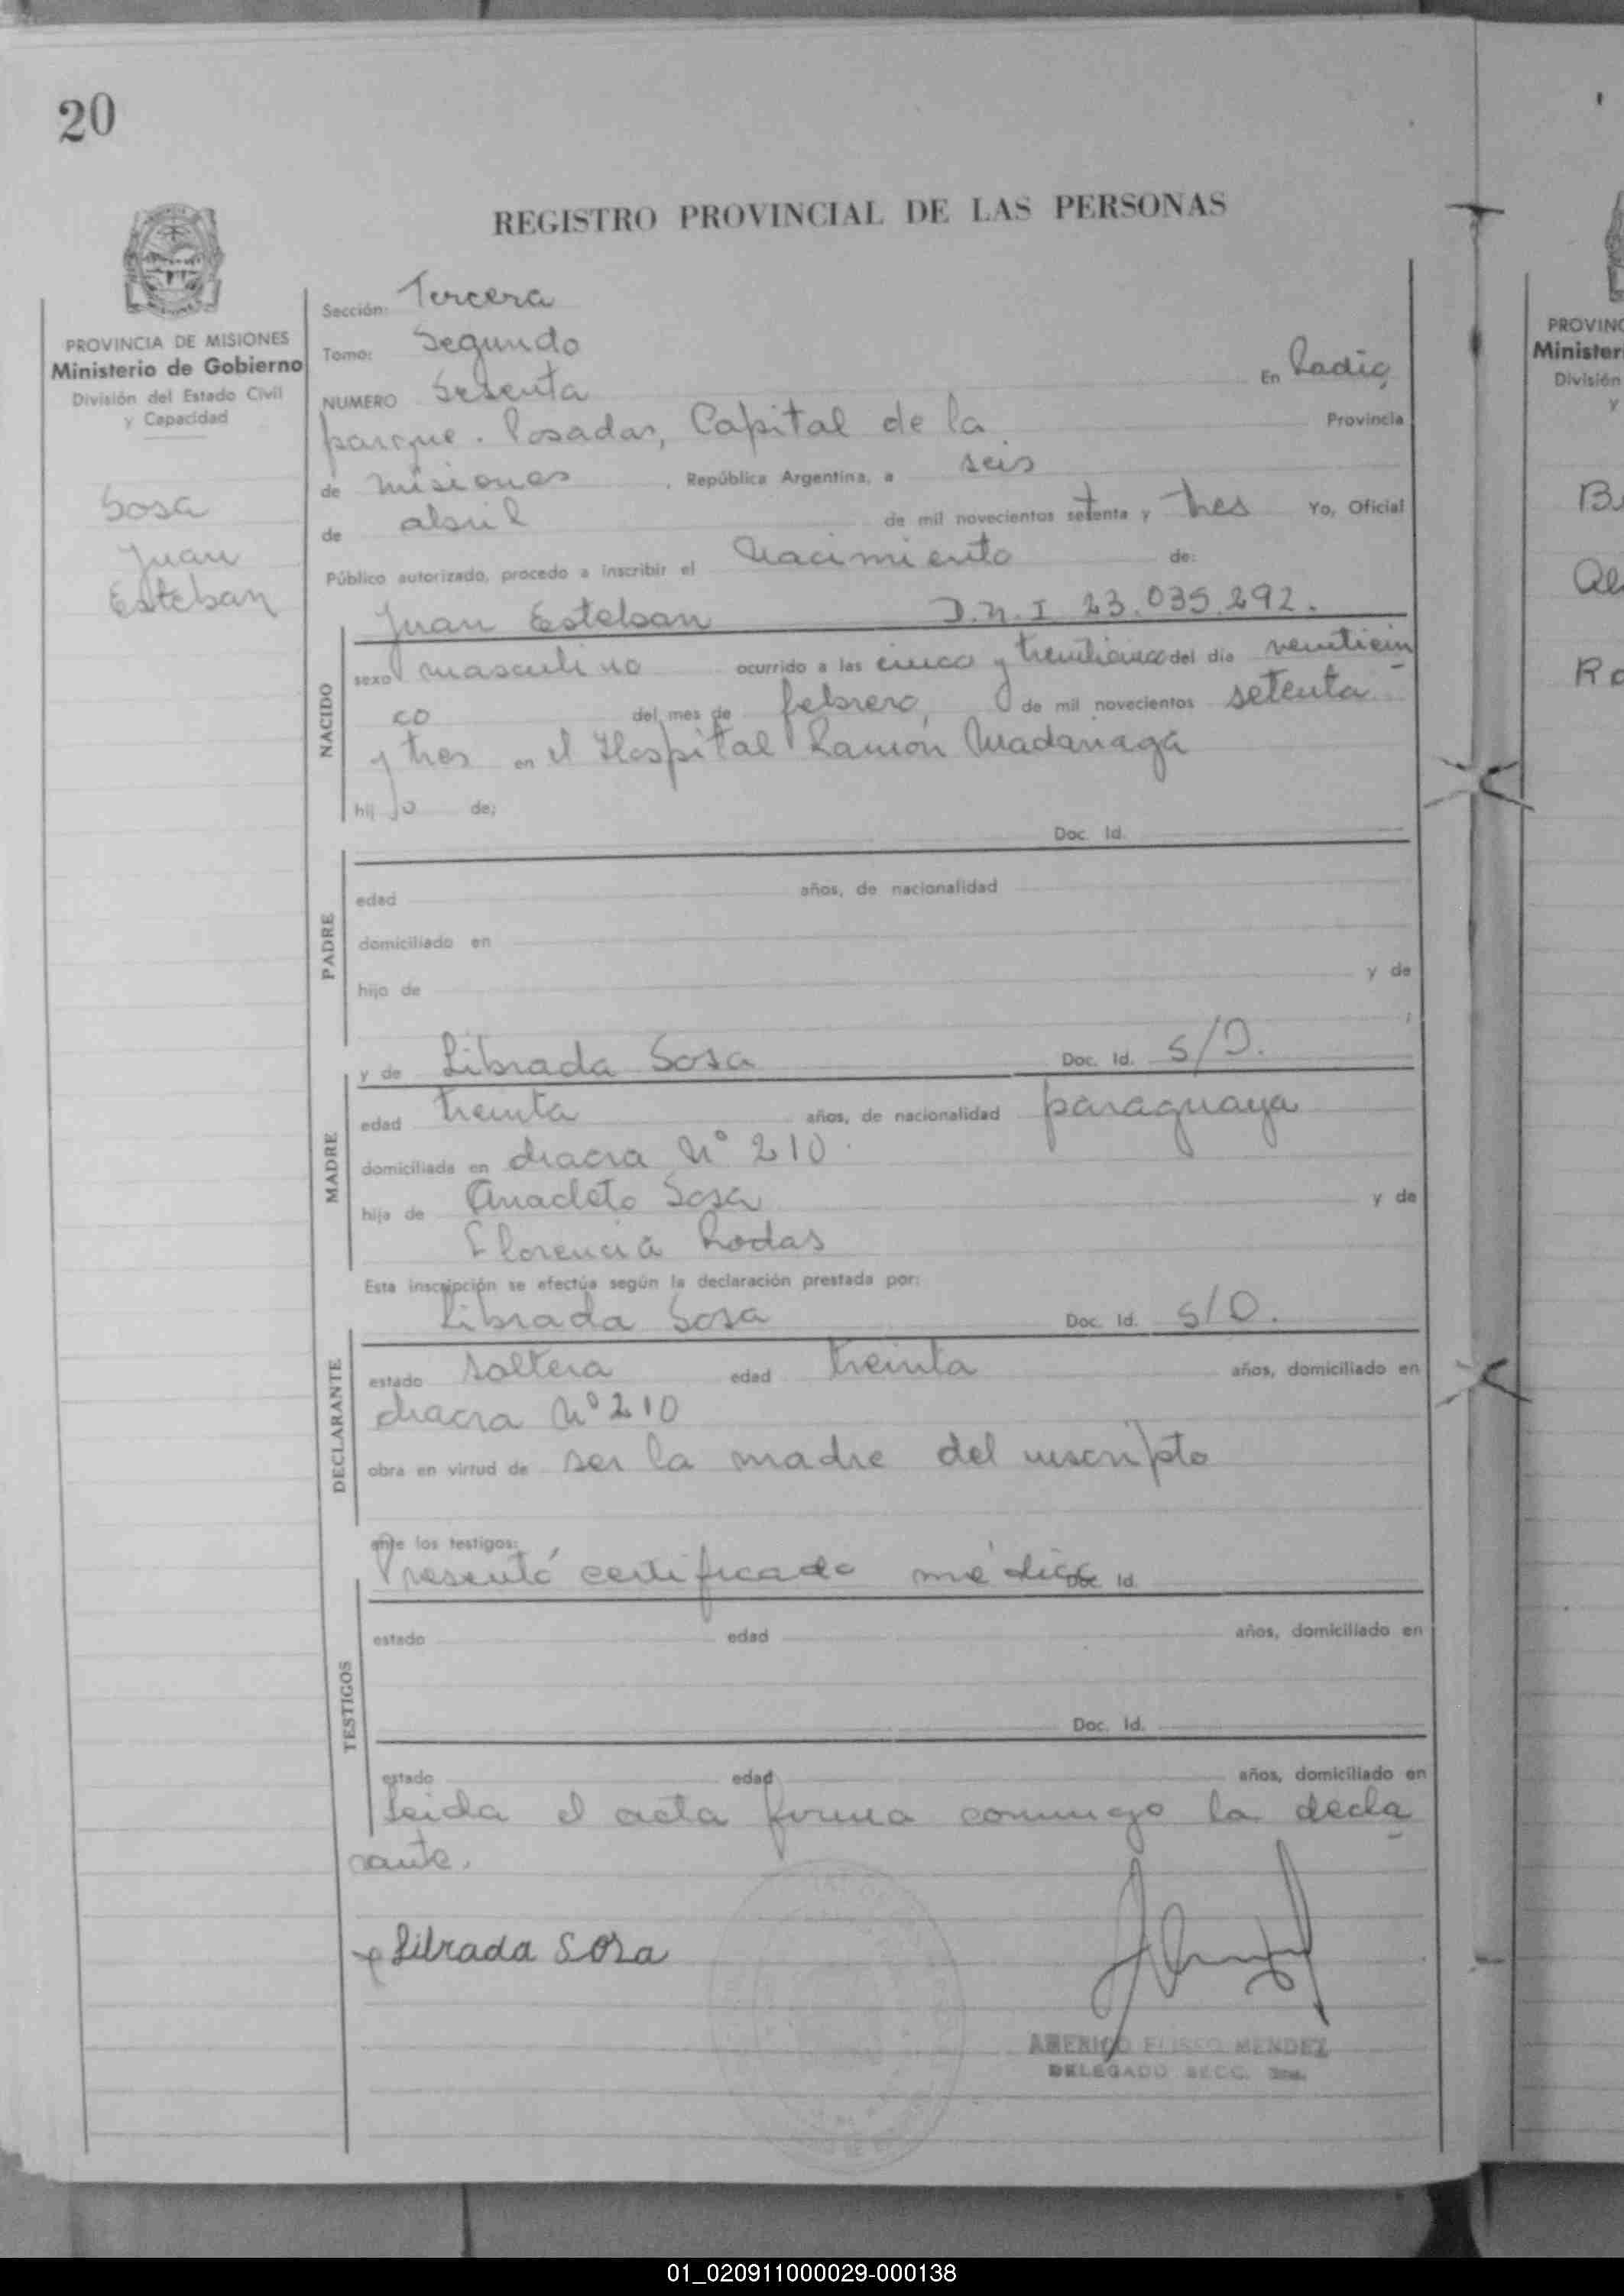 20
REGISTRO PROVINCIAL DE LAS PERSONAS
PROVINCIA DE MISIONES
Ministerio de Gobierno
División del Estado Civil
y Capacidad
Sosa
Juan
Esteban
Sección: Tercera
Tomo: Segundo
NUMERO Sesenta En Radio
parque. Posadas, Capital de la Provincia
de Misiones, República Argentina, a seis
de abril de mil novecientos setenta y tres Yo, Oficial
Público autorizado, procedo a inscribir el Nacimiento de:
Juan Esteban D.N.I 23.035.292.
NACIDO
sexo masculino ocurrido a las cinco y treinticinco del día veinticin
co del mes de febrero, de mil novecientos setenta
y tres en el Hospital Ramón Madariaga
hij jo de;
Doc. Id.
PADRE
edad años, de nacionalidad
domiciliado en
hijo de y de
y de Librada Sosa Doc. Id. S/D.
MADRE
edad treinta años, de nacionalidad paraguaya
domiciliada en chacra Nº 210.
hija de Anacleto Sosa y de
Florencia Rodas
Esta inscripción se efectúa según la declaración prestada por:
Librada Sosa Doc. Id. S/D.
DECLARANTE
estado soltera edad treinta años, domiciliado en
chacra Nº 210
obra en virtud de ser la madre del inscripto
ante los testigos:
Presentó certificado médico Doc. Id.
TESTIGOS
estado edad años, domiciliado en
Doc. Id.
estado edad años, domiciliado en
Leida el acta firma conmigo la decla
rante.
Librada Sosa
AMERICO ELISEO MENDEZ
DELEGADO SECC. 3ra.
PROVINC
Minister
División
y
01_020911000029-000138